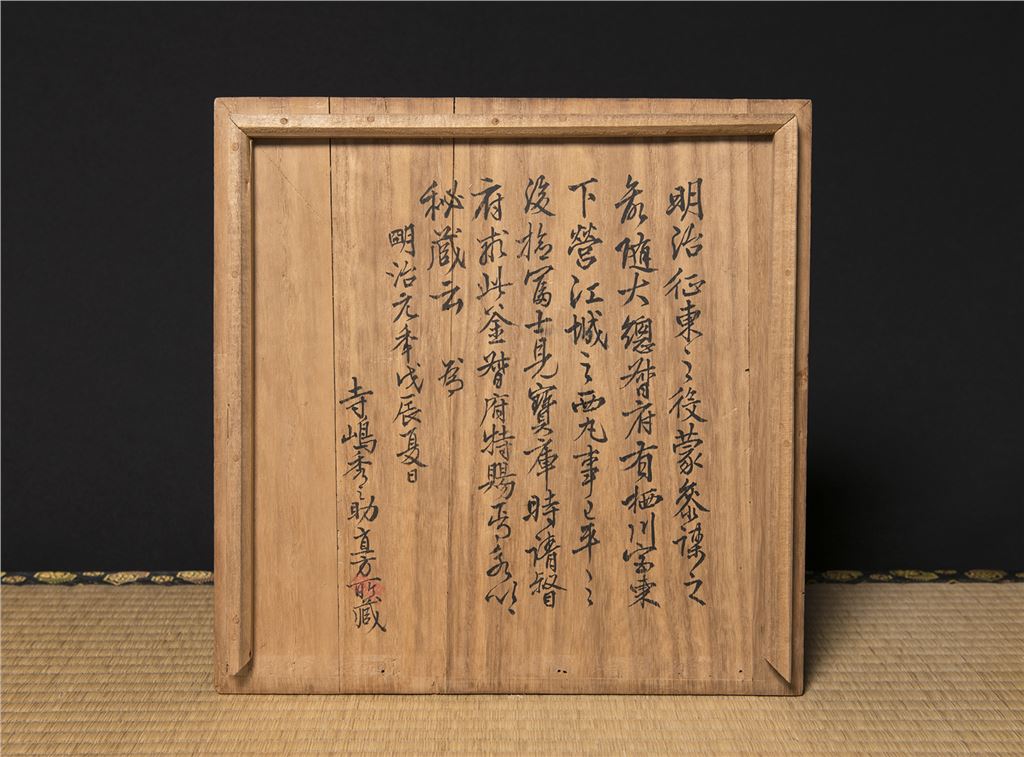 明治征東之役蒙參謀之
命隨大總督府有栖川宮東
下營江城之西丸事已平之
後檢富士見寶庫時請督
府求此釜督府特賜焉永以
秘蔵云爲
明治元年戊辰夏日
寺嶋秀之助直方所蔵